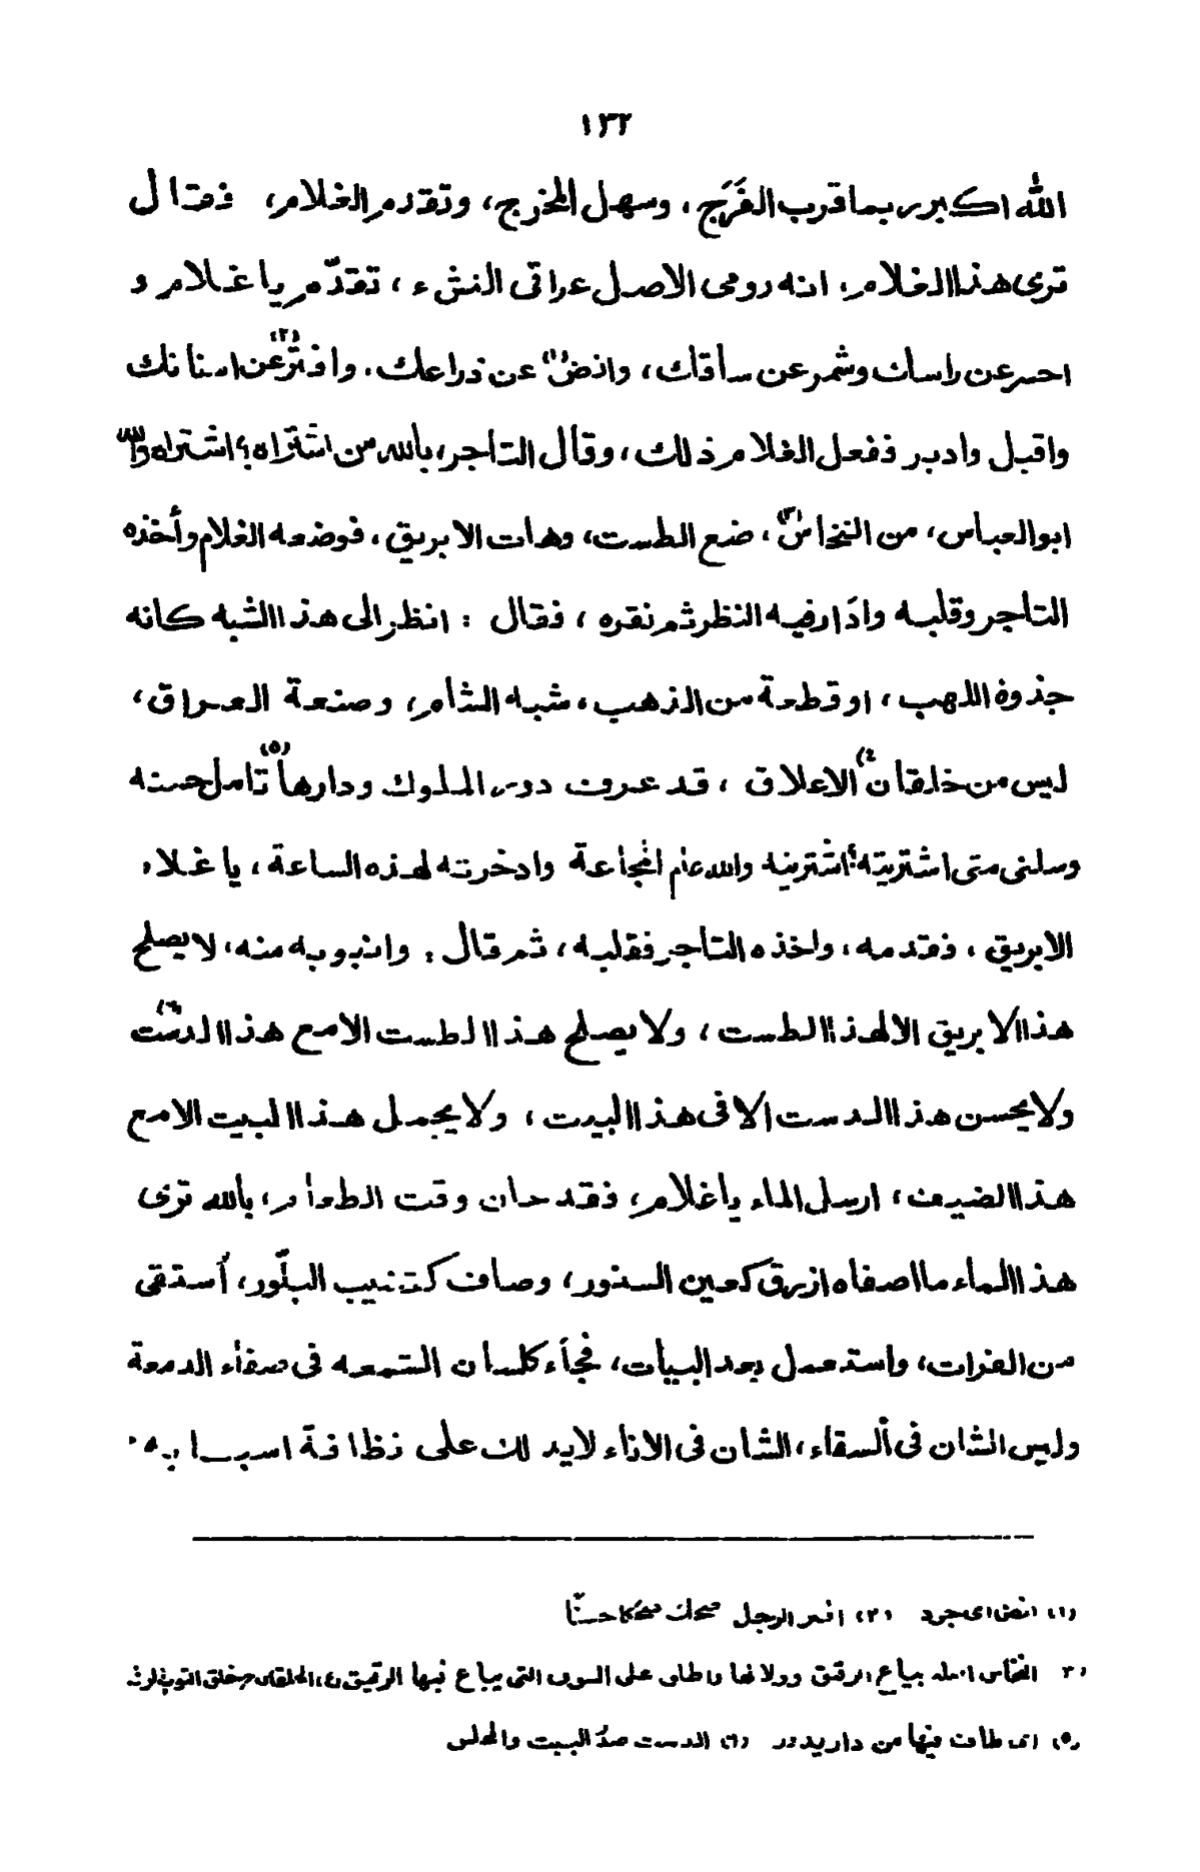 ١٣٢
الله اكبر ربما قرب الفَرَج، وسهل المخرج، وتقدم الغلام، فقال
ترى هذا الغلام، انه رومى الاصل عراقى النشء، تقدّم يا غلام و
احسر عن راسك وشمر عن ساقك، وانض(١) عن ذراعك، وافترّ(٢) عن اسنانك
واقبل وادبر ففعل الغلام ذلك، وقال التاجر، بالله من اشتراه؟ اشتراه والله
ابو العباس، من النخاس(٣)، ضع الطست، وهات الابريق، فوضعه الغلام وأخذه
التاجر وقلبه وادَار فيه النظر ثم نقره، فقال : انظر الى هذا الشبه كانه
جذوة اللهب، او قطعة من الذهب، شبه الشام، وصنعة العراق،
ليس من خلقان(٤) الاعلاق، قد عرف دور الملوك ودارها(٥) تامل حسنه
وسلنى متى اشتريته؟ اشتريته والله عام المجاعة وادخرته لهذه الساعة، يا غلام
الابريق، فقدمه، واخذه التاجر فقلبه، ثم قال : وانبوبه منه، لا يصلح
هذا الابريق الا لهذا الطست، ولا يصلح هذا الطست الا مع هذا الدست(٦)
ولا يحسن هذا الدست الا فى هذا البيت، ولا يجمل هذا البيت الا مع
هذا الضيف، ارسل الماء يا غلام، فقد حان وقت الطعام، بالله ترى
هذا الماء ما اصفاه ازرق كعين السنور، وصاف كقضيب البلّور، أستقى
من الفرات، واستعمل بعد البيات، فجاء كلسان الشمعه فى صفاء الدمعة
وليس الشان فى السقاء، الشان فى الاناء لايدلك على نظافة اسبابه
(١) انض اى جرد (٢) افتر الرجل ضحك ضحكا حسنًا
(٣) النخاس اصله بياع الرقيق ودلالها واطلق على السوق التى يباع فيها الرقيق (٤) الخلقان من خلق الثوب
(٥) اى طاف فيها من دار يدور (٦) الدست صدر البيت والمجلس